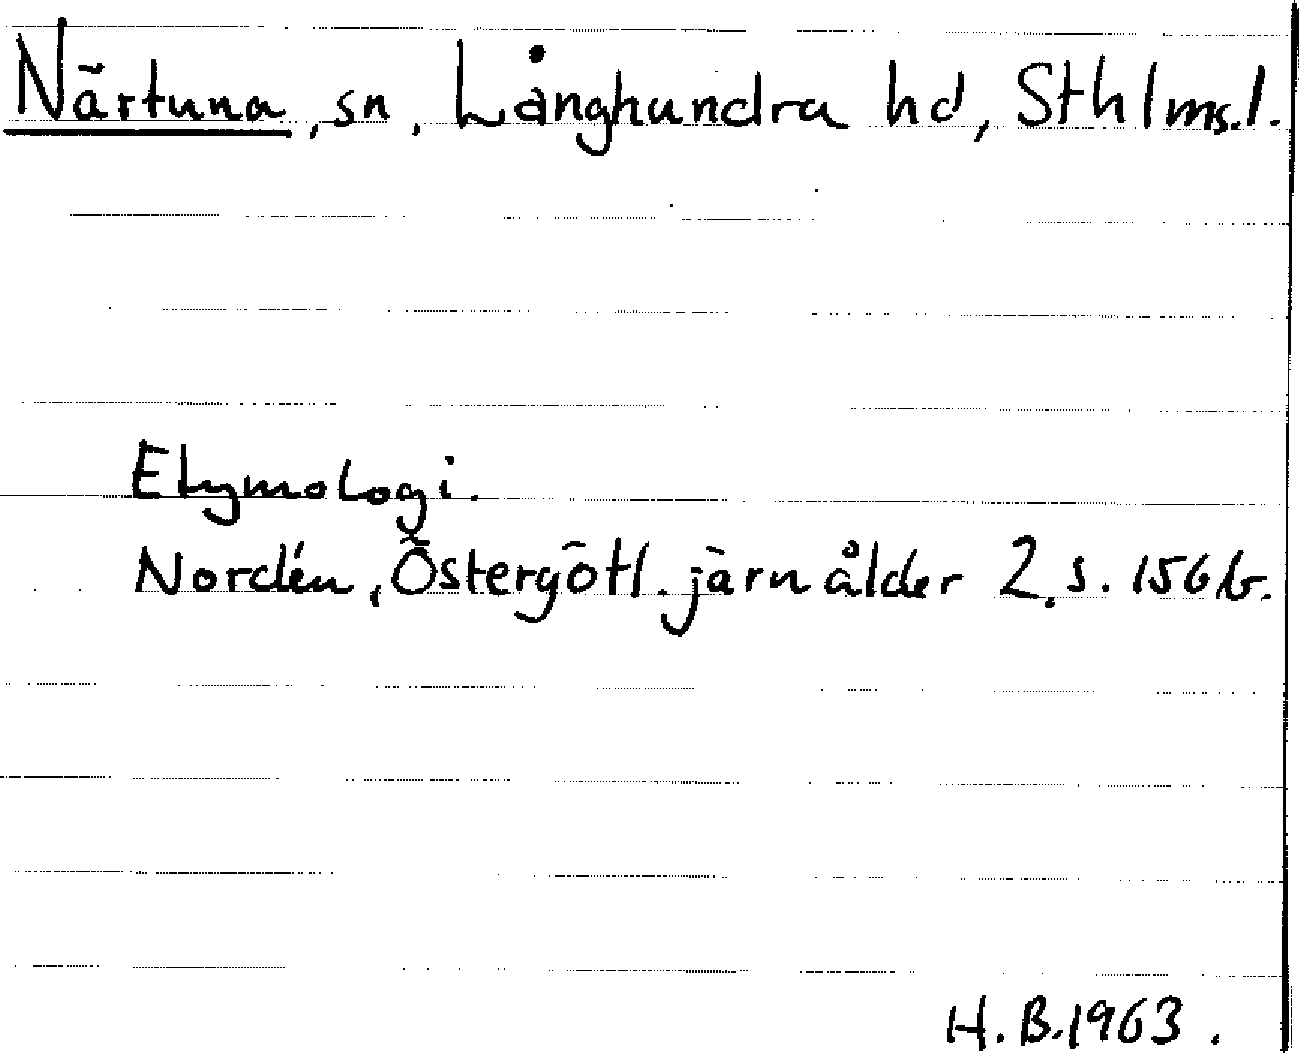 Närtuna, sn, Långhundra hd, Sthlms. l.
Etymologi.
Nordén, Östergötl. järnålder 2. s. 156 b.
H. B. 1963.